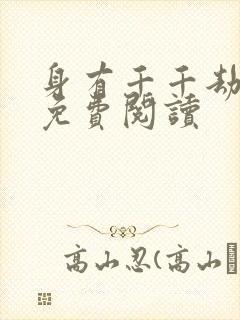 身有千千劫
免費閱讀
高山忍(高山